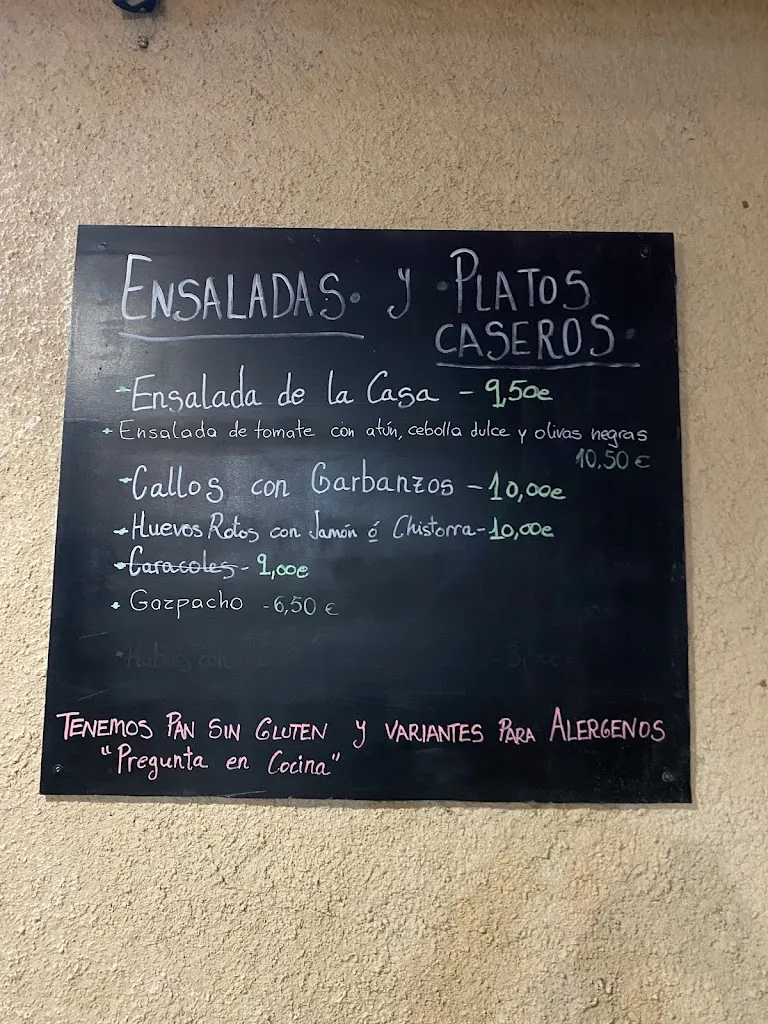 ENSALADAS · y · PLATOS
CASEROS ·
- Ensalada de la Casa - 9,50€
• Ensalada de tomate con atún, cebolla dulce y olivas negras
10,50 €
- Callos con Garbanzos - 10,00€
- Huevos Rotos con Jamón ó Chistorra - 10,00€
- Caracoles - 9,00€
• Gazpacho - 6,50 €
TENEMOS PAN SIN GLUTEN y VARIANTES PARA ALERGENOS
"Pregunta en Cocina"